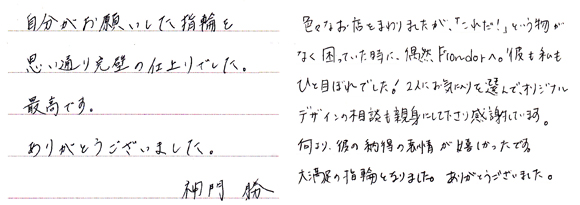 自分がお願いした指輪を
思い通り完璧の仕上りでした。
最高です。
ありがとうございました。
神門 勝
色々なお店をまわりましたが、「これだ!」という物が
なく困っていた時に、偶然Fiondorへ。彼も私も
ひと目ぼれでした!2人にお気に入りを選んで、オリジナル
デザインの相談も親身にして下さり感謝しています。
何より、彼の納得の表情が嬉しかったです。
大満足の指輪となりました。ありがとうございました。